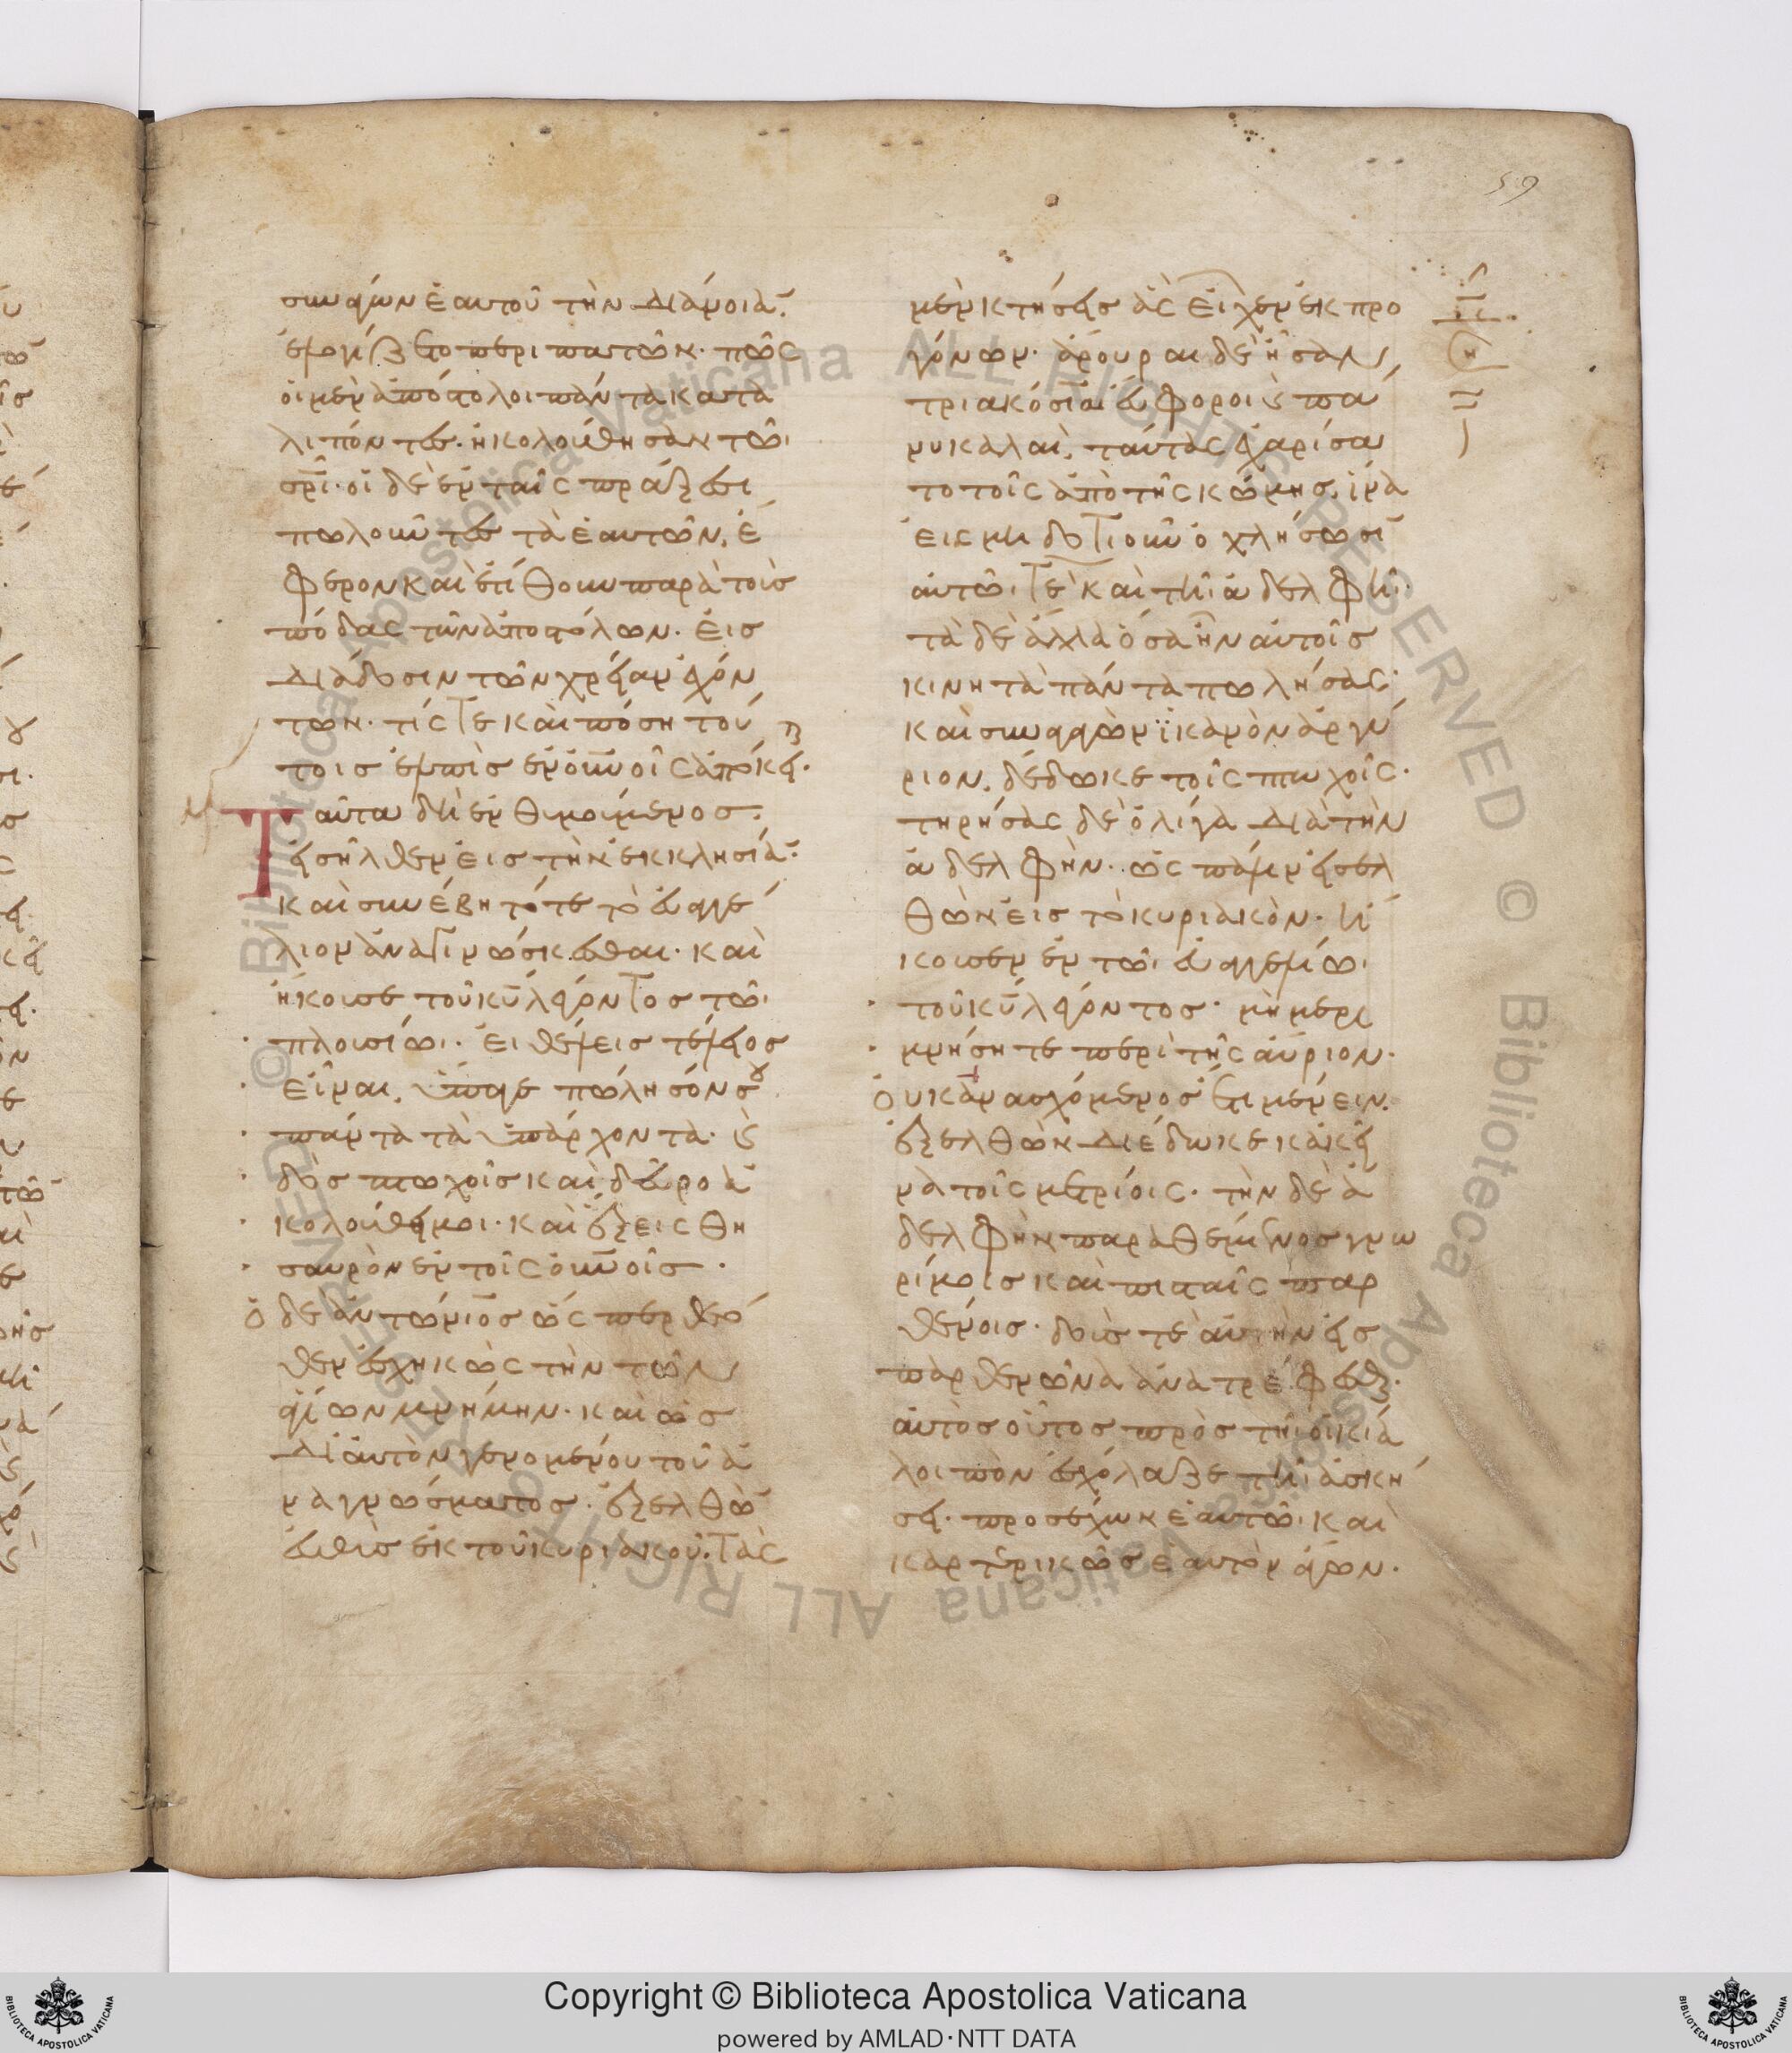 59
συνάγων ἑαυτοῦ τὴν διάνοιαν·
ἐλογίζετο περιπατῶν· πῶς
οἱ μὲν ἀπόστολοι πάντα κατα
λιπόντες· ἠκολούθησαν τῶι
σρι· οἱ δὲ ἐν ταῖς πράξεσι
πωλοῦντες τὰ ἑαυτῶν, ἔ
φερον καὶ ἐτίθουν παρὰ τοὺς
πόδας τῶν ἀποστόλων· εἰς
διάδοσιν τῶν χρείαν ἐχόν
των· τίς τε καὶ πόση τού
τοις ἐλπὶς ἐν οὐνοῖς ἀπόκει·
Ταῦτα δὴ ἐνθυμούμενος·
εἰσῆλθεν εἰς τὴν ἐκκλησίαν·
καὶ συνέβη τότε τὸ εὐαγγέ
λιον ἀναγινώσκεσθαι· καὶ
ἤκουσε τοῦ κυ λέγοντος τῶι
πλουσίωι· εἰ θέλεις τέλειος
εἶναι, ὕπαγε πώλησόν σου
πάντα τὰ ὑπάρχοντα· καὶ
δὸς πτωχοῖς καὶ δεῦρο ἀ
κολούθει μοι· καὶ ἕξεις θη
σαυρὸν ἐν τοῖς οὐνοῖς·
ὁ δὲ ἀντώνιος ὥσπερ θεό
θεν ἐσχηκὼς τὴν τῶν
ἁγίων μνήμην· καὶ ὡς
δι αὐτὸν γενομένου τοῦ ἀ
ναγνώσματος· ἐξελθὼν
εὐθὺς ἐκ τοῦ κυριακοῦ· τὰς
μὲν κτήσεις ἃς εἶχεν ἐκ προ
γόνων· ἄρουραι δὲ ἦσαν
τριακόσιαι εὔφοροι καὶ πά
νυ καλαί, ταύτας ἐχαρίσα
το τοῖς ἀπὸ τῆς κώμης, ἵνα
εἰς μηδοτιοῦν ὀχλήσωσιν
αὐτῶι τε καὶ τῆι ἀδελφῆι·
τὰ δὲ ἄλλα ὅσα ἦν αὐτοῖς
κινητὰ πάντα πωλήσας·
καὶ συναγαγὼν ἱκανὸν ἀργύ
ριον, δέδωκε τοῖς πτωχοῖς·
τηρήσας δὲ ὀλίγα διὰ τὴν
ἀδελφήν· ὡς πάλιν εἰσελ
θὼν εἰς τὸ κυριακὸν· ἤ
κουσεν ἐν τῶι εὐαγγελίωι
τοῦ κυ λέγοντος· μὴ μερι
μνήσητε περὶ τῆς αὔριον·
οὐκ ἀνασχόμενος ἔτι μένειν,
ἐξελθὼν διέδωκε κἀκεῖ
να τοῖς μετρίοις· τὴν δὲ ἀ
δελφὴν παραθέμενος γνω
ρίμοις καὶ πισταῖς παρ
θένοις· δούς τε αὐτὴν εἰς
παρθενῶνα ἀνατρέφεσθαι·
αὐτὸς οὗτος πρὸς τῆι οἰκία
λοιπὸν ἐσχόλαζε τῆι ἀσκή
σει· προσέχων ἑαυτῶι καὶ
καρτερικῶς ἑαυτὸν ἄγων·